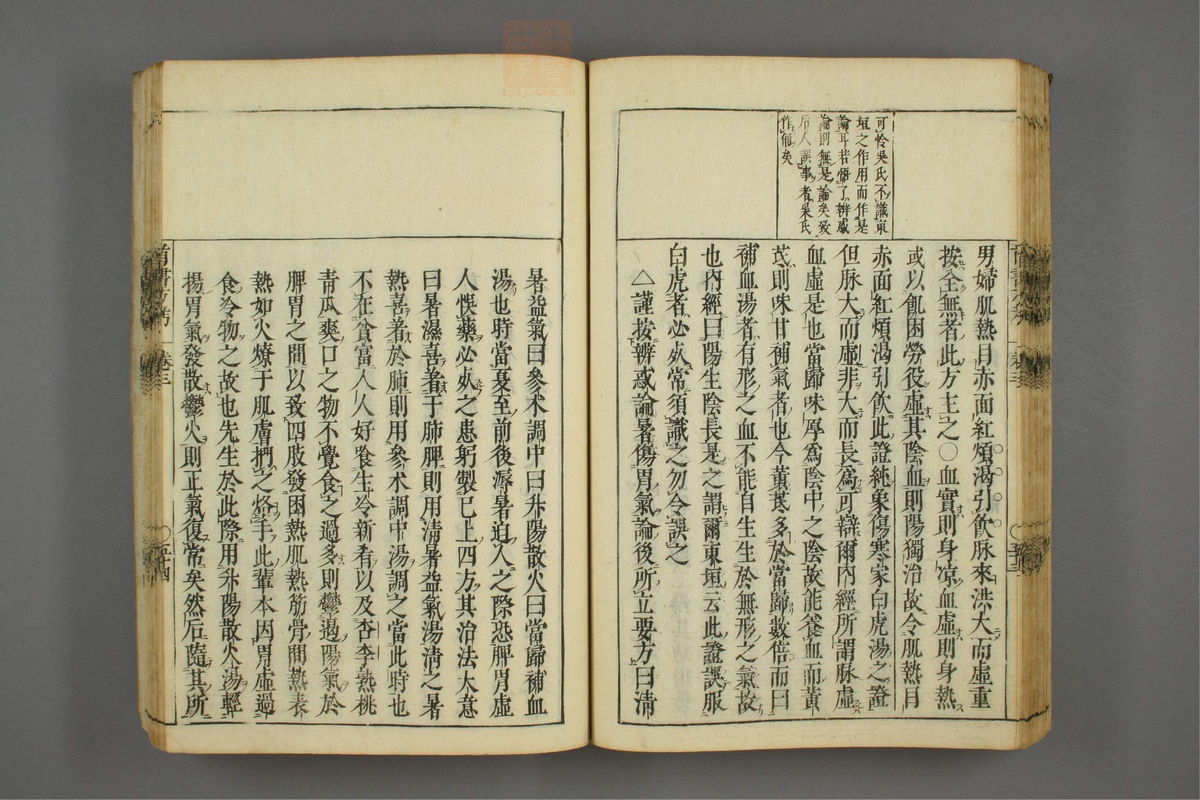 可怜吳氏不識東
垣之作用而作是
論耳若悟了辨惑
論則無是論矣致
后人誤事者吳氏
作俑矣
男婦肌熱目赤面紅煩渴引飲脉來洪大而虛重
按全無者此方主之○血實則身凉血虛則身熱
或以飢困勞役虛其陰血則陽獨治故令肌熱目
赤面紅煩渴引飲此證純象傷寒家白虎湯之證
但脉大而虛非大而長為可辯爾內經所謂脉虛
血虛是也當歸味厚為陰中之陰故能養血而黃
芪則味甘補氣者也今黃芪多於當歸數倍而曰
補血湯者有形之血不能自生生於無形之氣故
也內經曰陽生陰長是之謂爾東垣云此證誤服
白虎者必死常須識之勿令誤之
△謹按辨惑論暑傷胃氣論後所立要方曰清
暑益氣曰參术調中曰升陽散火曰當歸補血
湯也時當夏至前後溽暑迫人之際恐脾胃虛
人悞藥必死之患躬製已上四方其治法大意
曰暑濕喜著于肺脾則用清暑益氣湯清之暑
熱喜著於肺則用參术調中湯調之當此時也
不在貧富人人好飡生冷新肴以及杏李熟桃
青瓜爽口之物不覺食之過多則鬱遏陽氣於
脾胃之間以致四肢發困熱肌熱筋骨間熱表
熱如火燎于肌膚捫之烙手此輩本因胃虛過
食冷物之故也先生於此際用升陽散火湯輕
揚胃氣發散鬱火則正氣復常矣然后隨其所
卷三
五十四